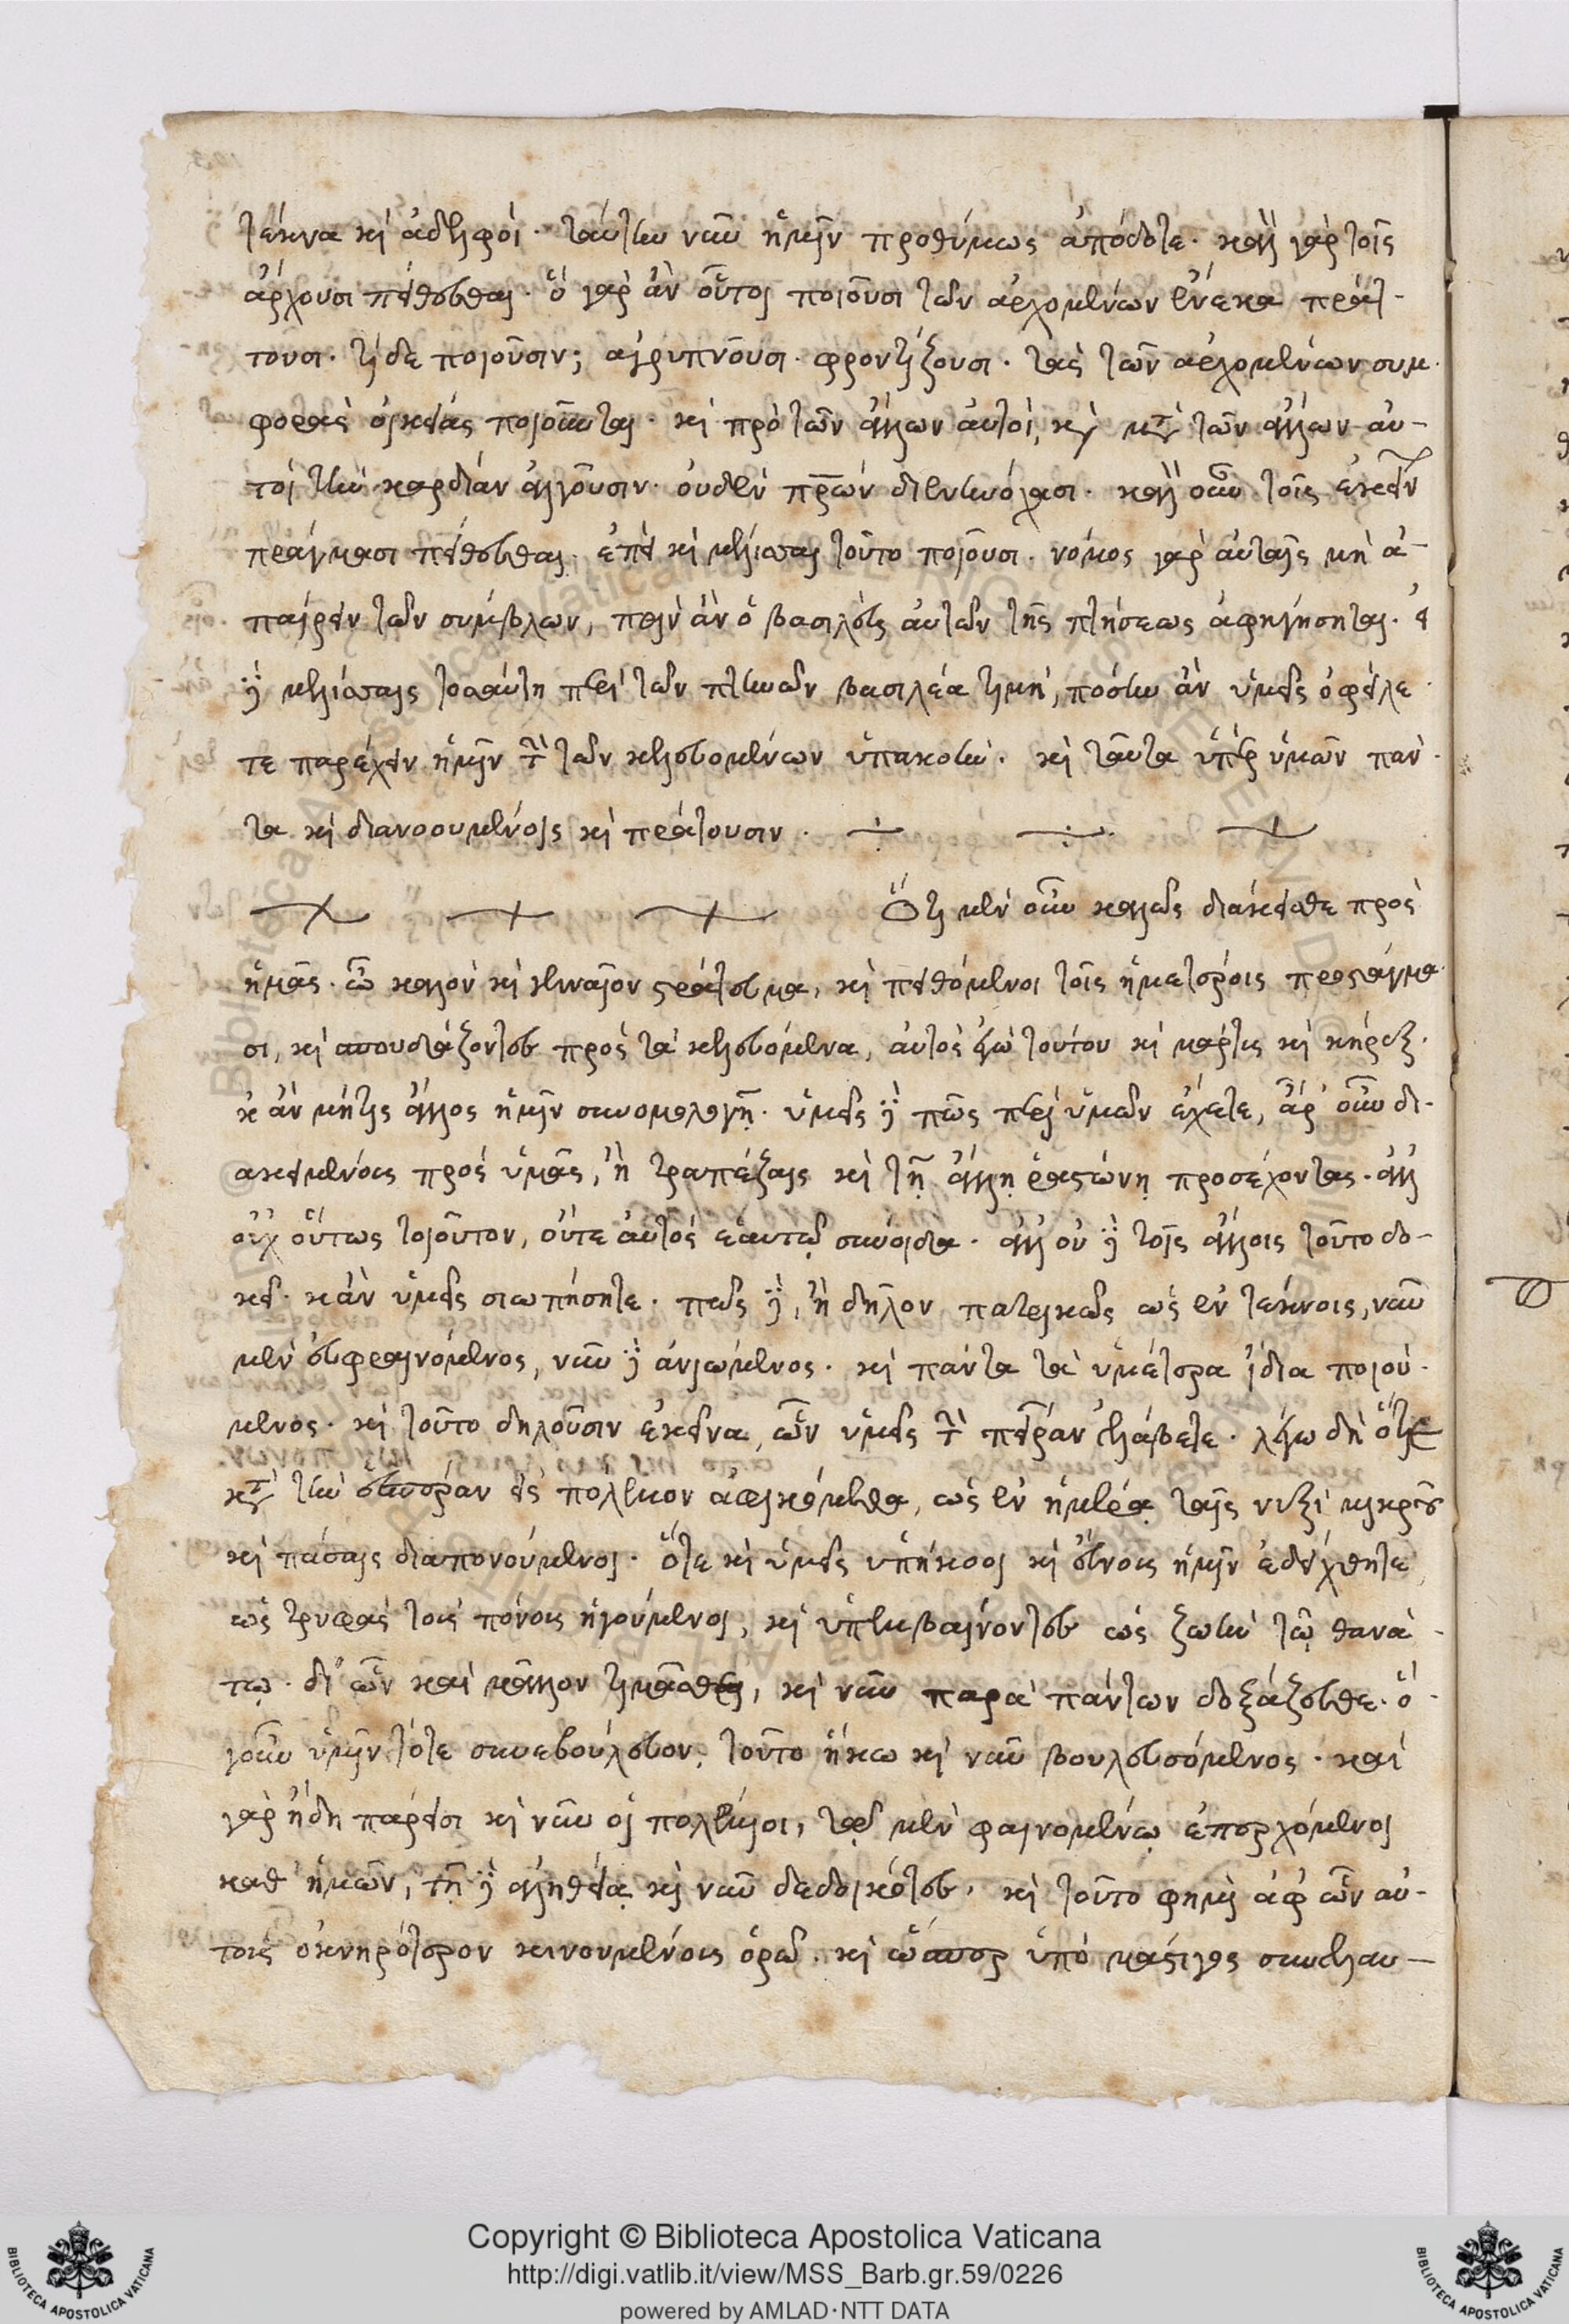 τέκνα καὶ ἀδελφοί· ταύτην νῦν ἡμῖν προθύμως ἀπόδοτε· καλὸν γὰρ τοῖς
ἄρχουσι πείθεσθαι· ὃ γὰρ ἂν οὗτοι ποιοῦσι τῶν ἀρχομένων ἕνεκα πράτ-
τουσι· τί δὲ ποιοῦσιν; ἀγρυπνοῦσι· φροντίζουσι· τὰς τῶν ἀρχομένων συμ-
φορὰς οἰκείας ποιοῦνται· καὶ πρὸ τῶν ἄλλων αὐτοί, καὶ μετὰ τῶν ἄλλων αὐ-
τοὶ τὴν καρδίαν ἀλγοῦσιν· οὐδὲν διενηνόχασι· καλὸν οὖν τοῖς ἐκείνων
πράγμασι πείθεσθαι· ἐπεὶ καὶ μέλισσαι τοῦτο ποιοῦσι· νόμος γὰρ αὐταῖς μὴ ἀ-
παίρειν τῶν σύμβλων, πρὶν ἂν ὁ βασιλεὺς αὐτῶν τῆς πτήσεως ἀφηγήσηται· εἰ
δὲ μελίσσαις τοσαύτη περὶ τὸν πτηνὸν βασιλέα τιμή, πόσην ἂν ὑμεῖς ὀφείλε-
τε παρέχειν ἡμῖν τὴν τῶν κελευομένων ὑπακοήν· καὶ ταῦτα ὑπὲρ ὑμῶν πάν-
τα καὶ διανοουμένοις καὶ πράττουσιν·
Ὅτι μὲν οὖν καλῶς διάκεισθε πρὸς
ἡμᾶς· ὦ καλὸν καὶ γενναῖον στράτευμα, καὶ πειθόμενοι τοῖς ἡμετέροις προστάγμα-
σι, καὶ σπουδάζοντες πρὸς τὰ κελευόμενα, αὐτὸς ἐγὼ τούτου καὶ μάρτυς καὶ κήρυξ·
κἂν μήτις ἄλλος ἡμῖν συνομολογῇ· ὑμεῖς δὲ πῶς περὶ ὑμῶν ἔχετε, ἆρ' οὖν δι-
ακειμένους πρὸς ὑμᾶς, ἢ τραπέζαις καὶ τῇ ἄλλῃ ῥαστώνῃ προσέχοντας· ἀλλ'
οὐχ οὕτως τοιοῦτον, οὔτε αὐτὸς ἑαυτῷ σύνοιδα· ἀλλ' οὐ δὲ τοῖς ἄλλοις τοῦτο δο-
κεῖ· κἂν ὑμεῖς σιωπήσητε· πῶς δέ, ἢ δῆλον πατρικῶς ὡς ἐν τέκνοις, νῦν
μὲν εὐφραινόμενος, νῦν δὲ ἀνιώμενος· καὶ πάντα τὰ ὑμέτερα ἴδια ποιού-
μενος· καὶ τοῦτο δηλοῦσιν ἐκεῖνα, ὧν ὑμεῖς τὴν πεῖραν ἐλάβετε· λέγω δὴ ὅτε
κατὰ τὴν ἑσπέραν εἰς πόλεμον ἀφικόμεθα, ὡς ἐν ἡμέρᾳ ταῖς νυξὶ μικροῦ
καὶ πάσαις διαπονούμενοι· ὅτε καὶ ὑμεῖς ὑπήκοοι καὶ εὔνους ἡμῖν ἐδείχθητε
ὡς τρυφὰς τοὺς πόνους ἡγούμενοι, καὶ ὑπεμβαίνοντες ὡς ζωὴν τῷ θανά-
τῳ· δι' ὧν καὶ μᾶλλον τιμᾶσθε, καὶ νῦν παρὰ πάντων δοξάζεσθε· ὃ
γοῦν ὑμῖν τότε συνεβούλευον· τοῦτο ἥκω καὶ νῦν βουλευσόμενος· καὶ
γὰρ ἤδη πάρεισι καὶ νῦν οἱ πολέμιοι, τῷ μὲν φαινομένῳ ἐπερχόμενοι
καθ' ἡμῶν, τῇ δὲ ἀληθείᾳ καὶ νῦν δεδοικότες· καὶ τοῦτο φημὶ ἀφ' ὧν αὐ-
τοὺς ὀκνηρότερον κινουμένους ὁρῶ· καὶ ὥσπερ ὑπὸ μάστιγος συνελαυ-
Copyright © Biblioteca Apostolica Vaticana
http://digi.vatlib.it/view/MSS_Barb.gr.59/0226
powered by AMLAD·NTT DATA
BIBLIOTECA APOSTOLICA VATICANA
BIBLIOTECA APOSTOLICA VATICANA